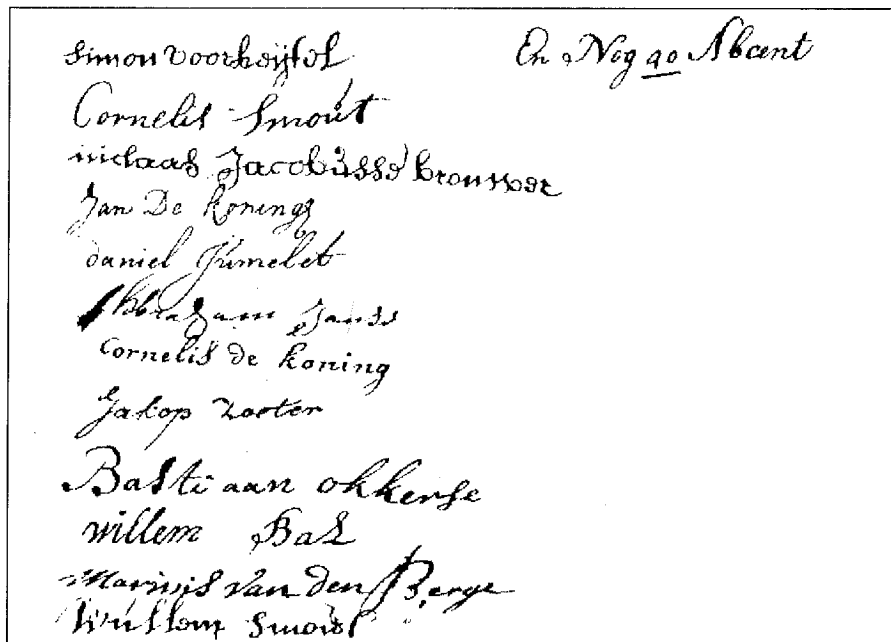 Simon voorbeijtel
En Nog 40 Abcent
Cornelis Smout
niclaas Jacobusse brouwer
Jan De Koningh
daniel Jumelet
Abraham Janss
Cornelis de koning
Jakop zooter
Bastiaan okkerse
willem Bal
Marinis van den Berge
Willem Smout